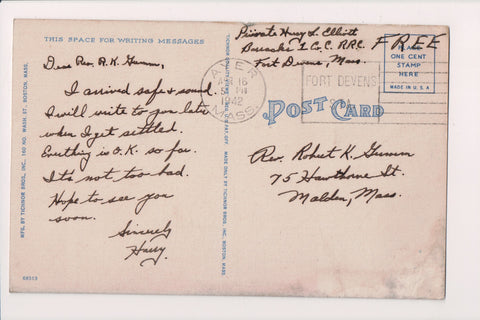 THIS SPACE FOR WRITING MESSAGES
Dear Rev. R. K. Gumm,
I arrived safe & sound.
I will write to you later
when I get settled.
Everything is O.K. so far.
It's not too bad.
Hope to see you
soon.
Sincerely
Harry
68313
MFG. BY TICHNOR BROS., INC., 160 NO. WASH. ST., BOSTON, MASS.
MADE ONLY BY TICHNOR BROS. INC., BOSTON, MASS.
Private Harry L. Elliott
Barracks 7 Co. C. R.R.C.
Fort Devens, Mass.
FREE
PLACE
ONE CENT
STAMP
HERE
MADE IN U.S.A.
AYER
16
5 PM
1942
MASS.
FORT DEVENS
POST CARD
Rev. Robert K. Gumm
75 Hawthorne St.
Malden, Mass.